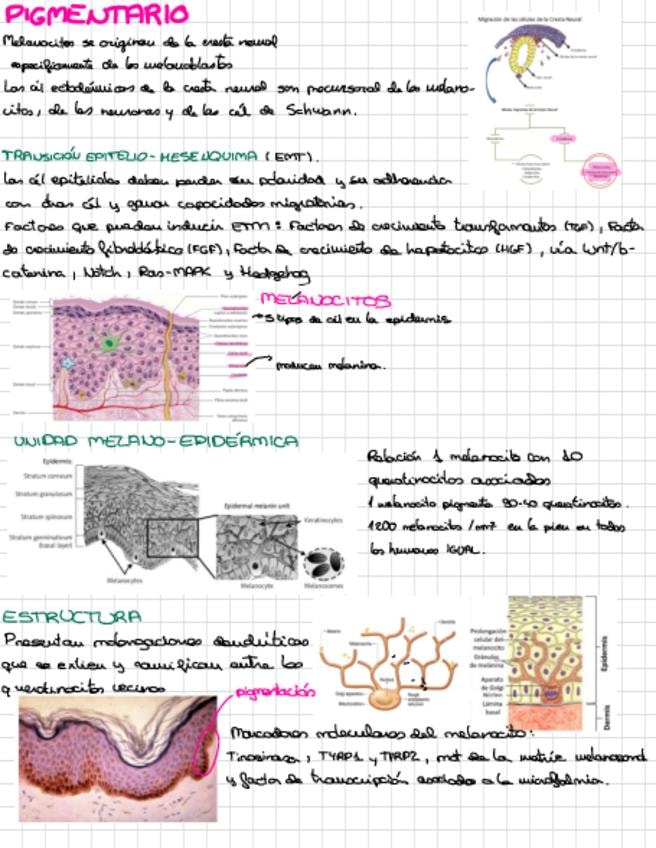 PIGMENTARIO
Melanocitos se originan de la cresta neural
especificamente de los melanoblastos
Las cél ectodérmicas de la cresta neural son precursoras de los melano-
citos, de las neuronas y de las cél de Schwann.
Migración de las células de la Cresta Neural
TRANSICIÓN EPITELIO-MESENQUIMA (EMT).
Las cél epiteliales deben perder su polaridad y su adherencia
con otras cél y ganar capacidades migratorias.
Factores que pueden inducir ETM: Factores de crecimiento transformantes (TGF), Factor
de crecimiento fibroblástico (FGF), Factor de crecimiento de hepatocitos (HGF), vía Wnt/b-
catenina, Notch, Ras-MAPK y Hedgehog
MELANOCITOS
5 tipos de cél en la epidermis
producen melanina.
UNIDAD MELANO-EPIDÉRMICA
Epidermis:
Stratum corneum
Stratum granulosum
Stratum spinosum
Stratum germinativum
(basal layer)
Melanocytes
Epidermal melanin unit
Keratinocytes
Melanocyte
Melanosomes
Relación 1 melanocito con 10
queratinocitos asociados
1 melanocito pigmenta 30-40 queratinocitos.
1200 melanocitos / en la piel en todos
los humanos IGUAL.
ESTRUCTURA
Presentan prolongaciones dendríticas
que se extienden y ramifican entre los
queratinocitos vecinos
pigmentación
Prolongación
celular del
melanocito
Gránulos
de melanina
Aparato
de Golgi
Núcleo
Lámina
basal
Epidermis
Dermis
Marcadores moleculares del melanocito:
Tirosinasa, TYRP1 y TYRP2, de la matriz melanosomal
y factor de transcripción asociado a la microftalmia.